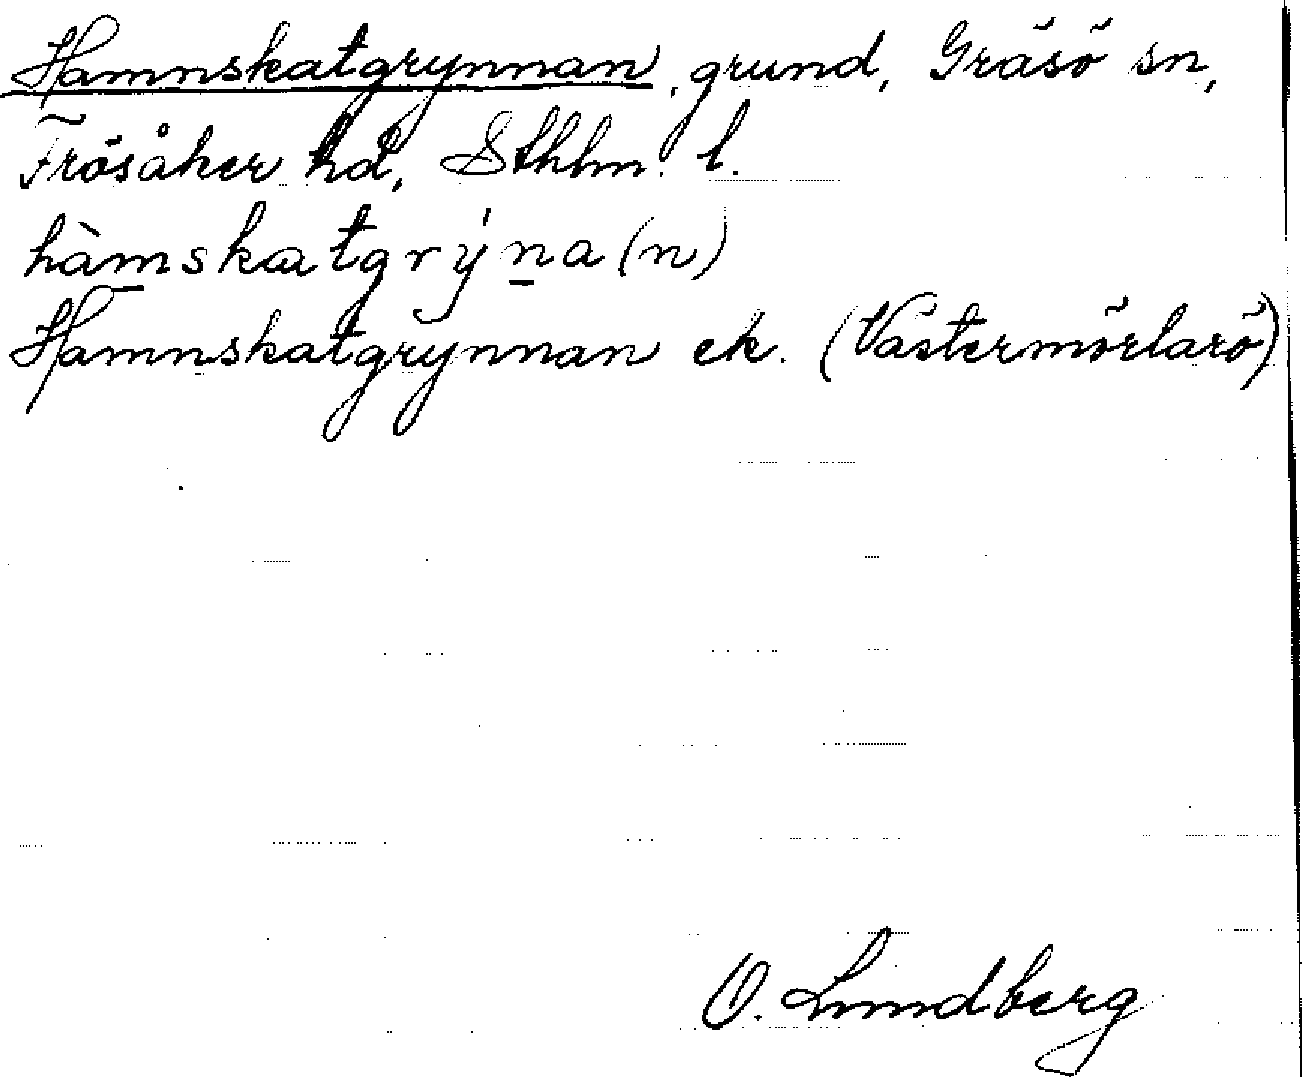 Hamnskatgrynnan, grund, Gräsö sn,
Frösåker hd, Sthlm. l.
hàm̲skatgrýn̲a(n)
Hamnskatgrynnan ek. (Västermörlarö)
O. Lundberg